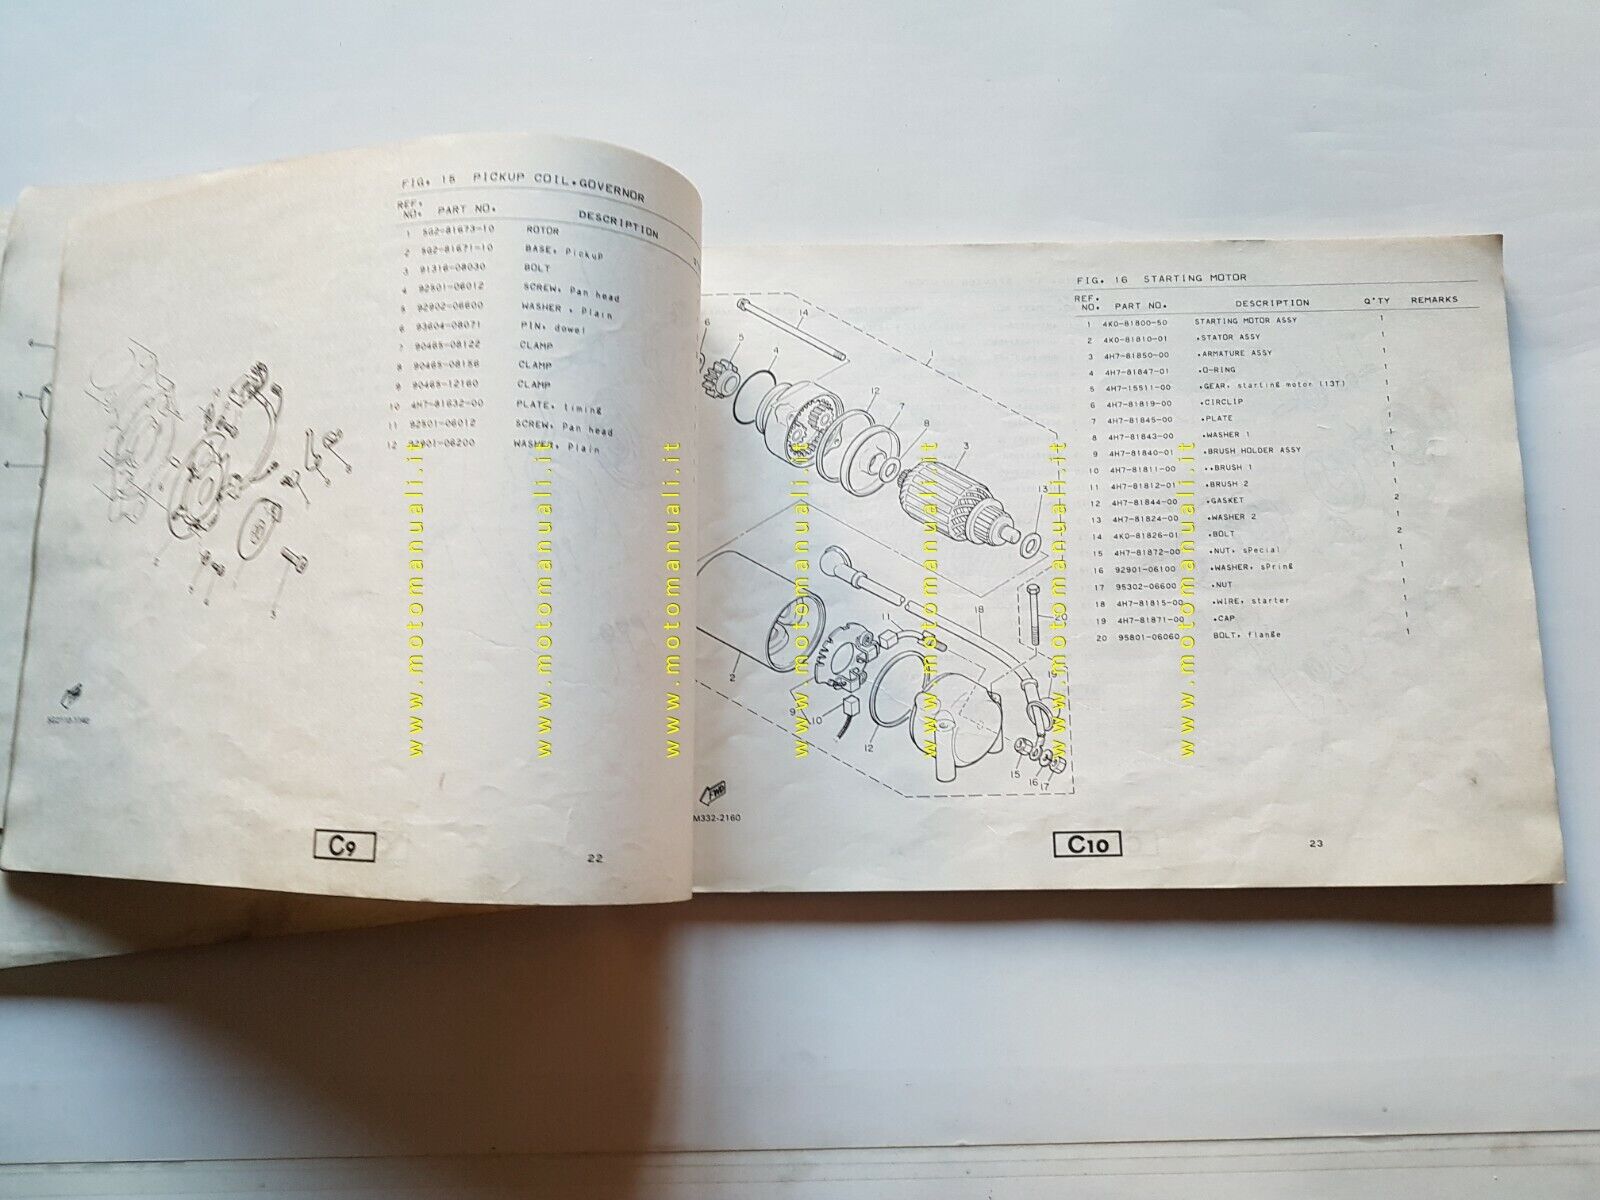 FIG. 15 PICKUP COIL.GOVERNOR
REF. NO. PART NO. DESCRIPTION
1 5G2-81673-10 ROTOR
2 5G2-81671-10 BASE, Pickup
3 91316-08030 BOLT
4 92501-06012 SCREW, Pan head
5 92902-06600 WASHER, Plain
6 93604-08071 PIN, dowel
7 90465-08122 CLAMP
8 90465-08156 CLAMP
9 90465-12160 CLAMP
10 4H7-81632-00 PLATE, timing
11 92501-06012 SCREW, Pan head
12 92901-06200 WASHER, Plain
C9
22
FIG. 16 STARTING MOTOR
REF. NO. PART NO. DESCRIPTION Q'TY REMARKS
1 4K0-81800-50 STARTING MOTOR ASSY 1
2 4K0-81810-01 .STATOR ASSY 1
3 4H7-81850-00 .ARMATURE ASSY 1
4 4H7-81847-01 .O-RING 1
5 4H7-15511-00 .GEAR, starting motor (13T) 1
6 4H7-81819-00 .CIRCLIP 1
7 4H7-81845-00 .PLATE 1
8 4H7-81843-00 .WASHER 1 1
9 4H7-81840-01 .BRUSH HOLDER ASSY 1
10 4H7-81811-00 ..BRUSH 1 1
11 4H7-81812-01 .BRUSH 2 1
12 4H7-81844-00 .GASKET 2
13 4H7-81824-00 .WASHER 2 1
14 4K0-81826-01 .BOLT 2
15 4H7-81872-00 .NUT, sPecial 1
16 92901-06100 .WASHER, sPring 1
17 95302-06600 .NUT 1
18 4H7-81815-00 .WIRE, starter 1
19 4H7-81871-00 .CAP 1
20 95801-06060 BOLT, flange 1
6
5
4
14
1
12
7
8
3
13
2
11
18
20
9
10
12
15
16
17
FWD
M332-2160
C10
23
www.motomanuali.it
www.motomanuali.it
www.motomanuali.it
www.motomanuali.it
www.motomanuali.it
www.motomanuali.it
www.motomanuali.it